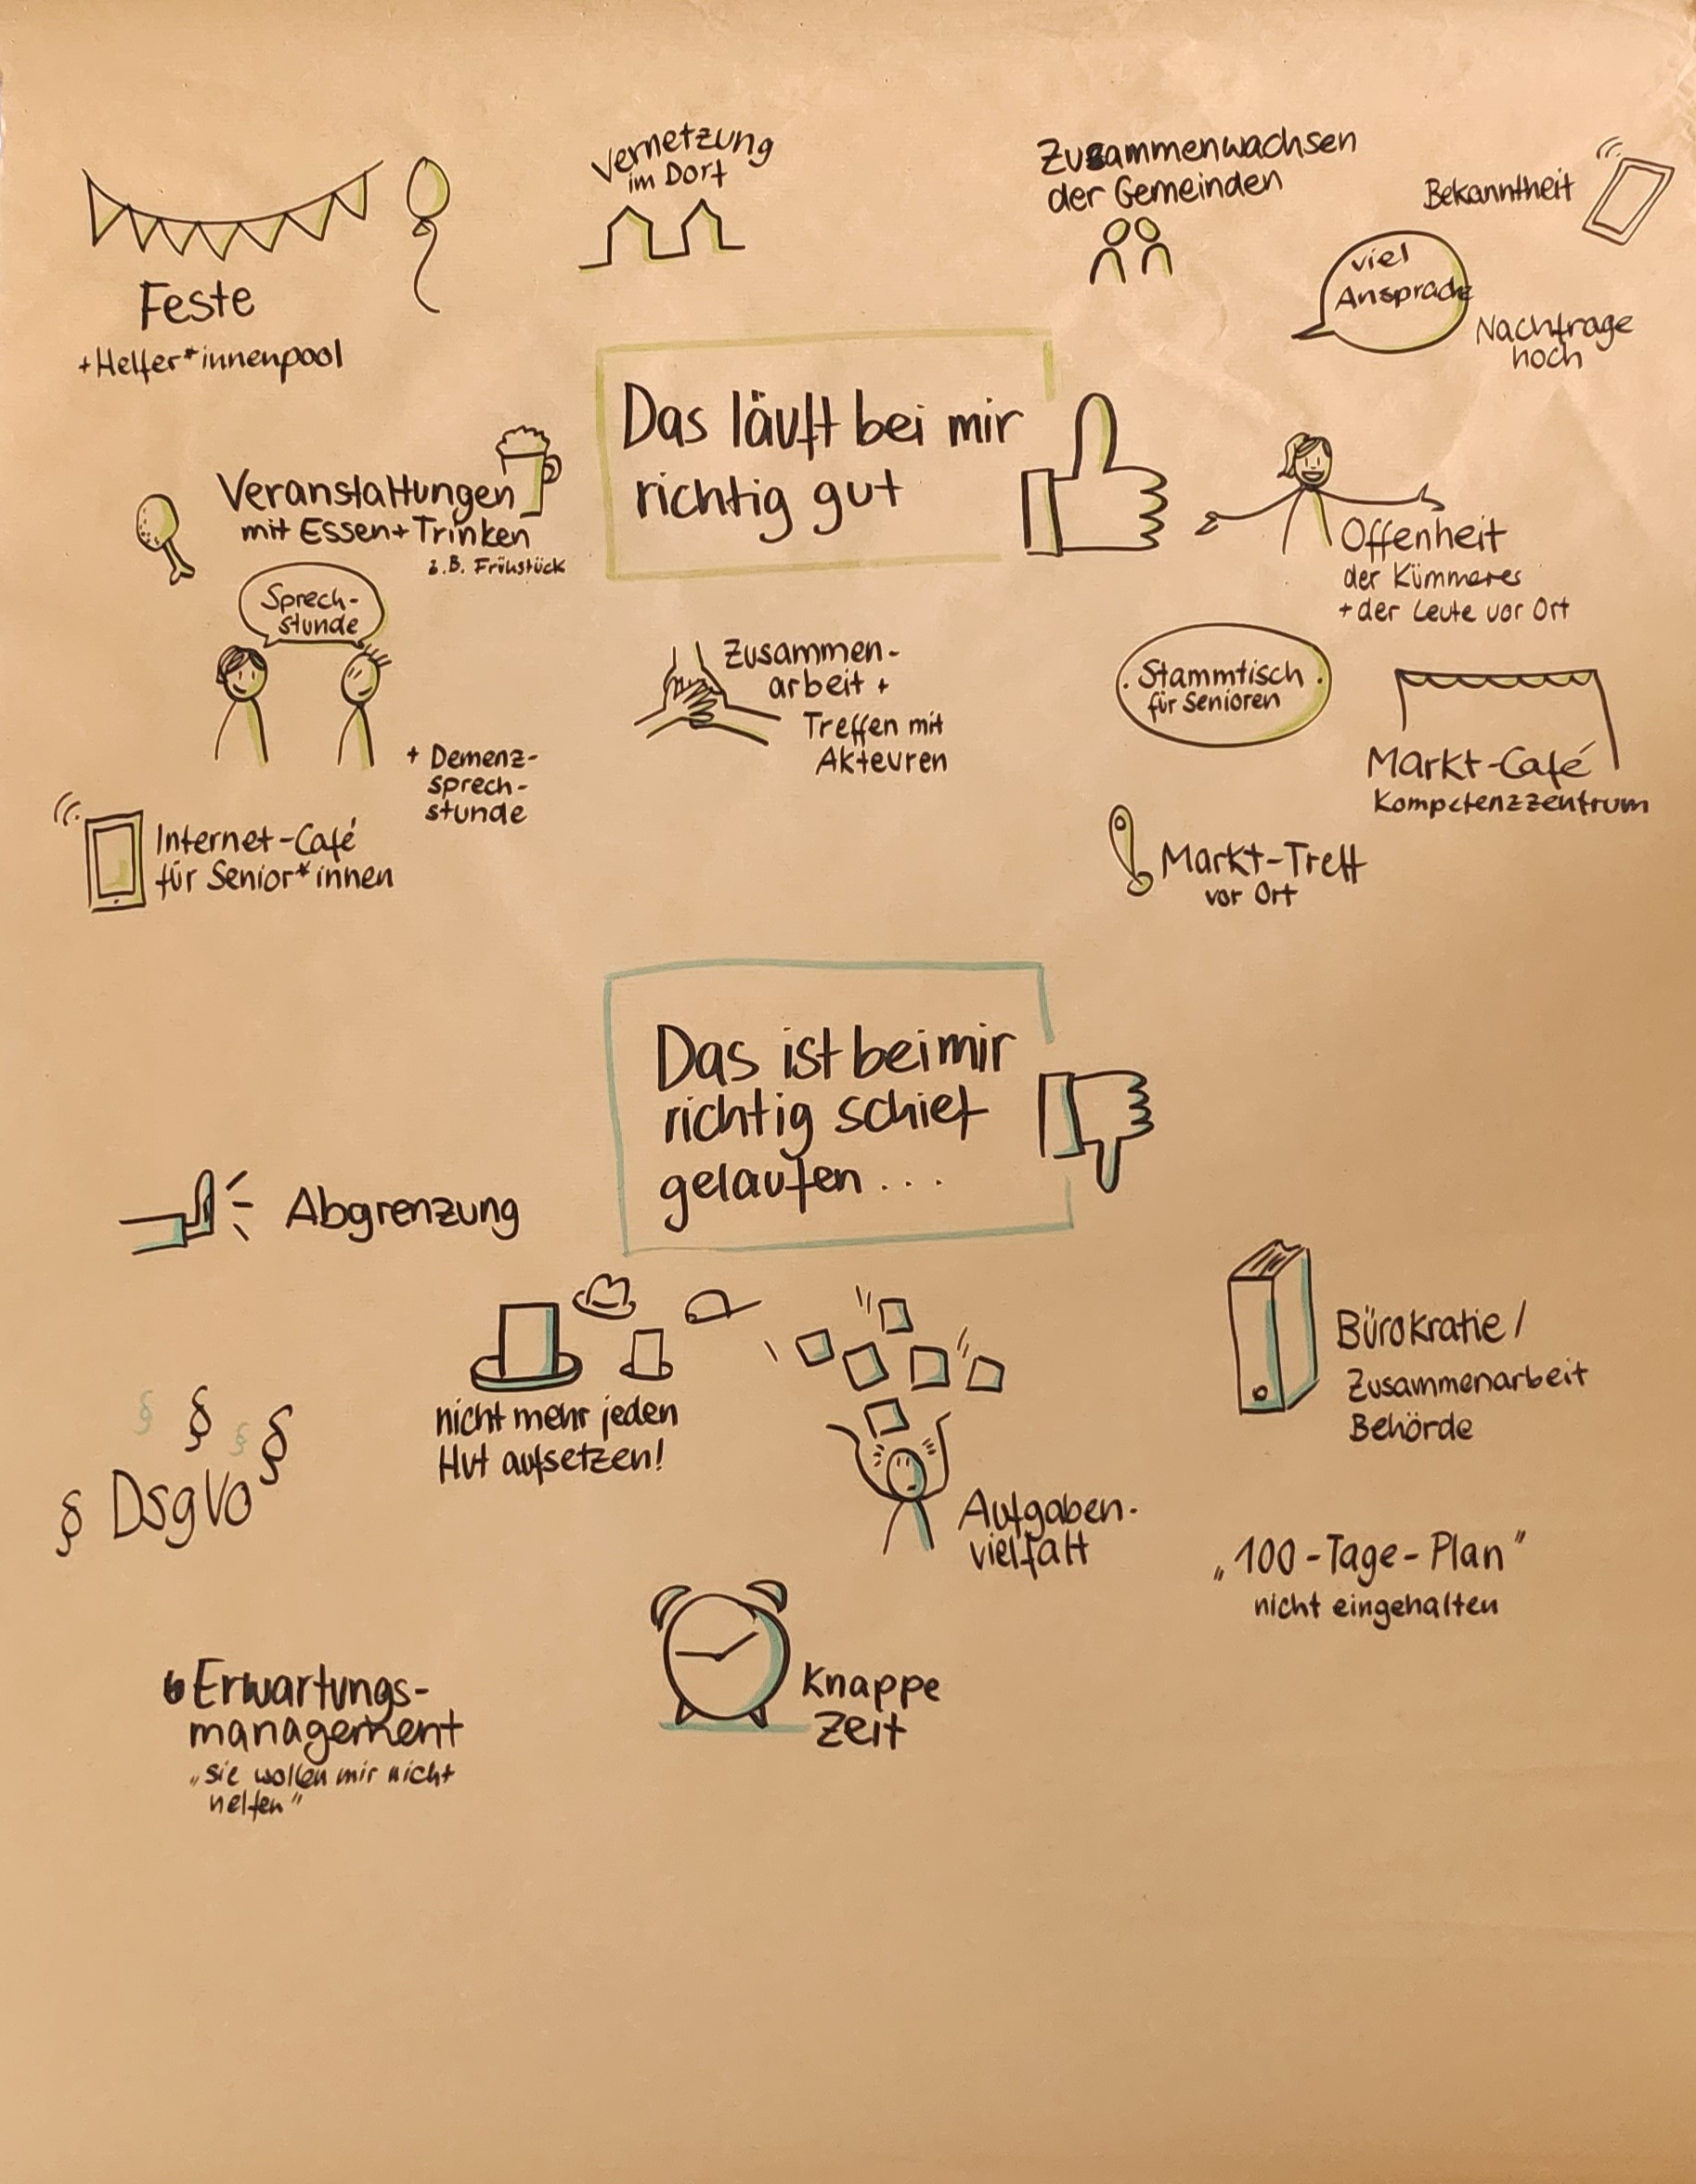 Vernetzung
im Dorf
Zusammenwachsen
der Gemeinden
Bekanntheit
viel
Ansprache
Nachfrage
hoch
Feste
+ Helfer*innenpool
Das läuft bei mir
richtig gut
Veranstaltungen
mit Essen + Trinken
z.B. Frühstück
Offenheit
der Kümmerer
+ der Leute vor Ort
Sprech-
stunde
+ Demenz-
sprech-
stunde
Zusammen-
arbeit +
Treffen mit
Akteuren
Stammtisch
für Senioren
Markt-Café
Kompetenzzentrum
Internet-Café
für Senior*innen
Markt-Treff
vor Ort
Das ist bei mir
richtig schief
gelaufen...
Abgrenzung
nicht mehr jeden
Hut aufsetzen!
Bürokratie /
Zusammenarbeit
Behörde
§ § § §
§ DsgVo
Aufgaben-
vielfalt
„100-Tage-Plan"
nicht eingehalten
Erwartungs-
management
„sie wollen mir nicht
helfen"
Knappe
Zeit